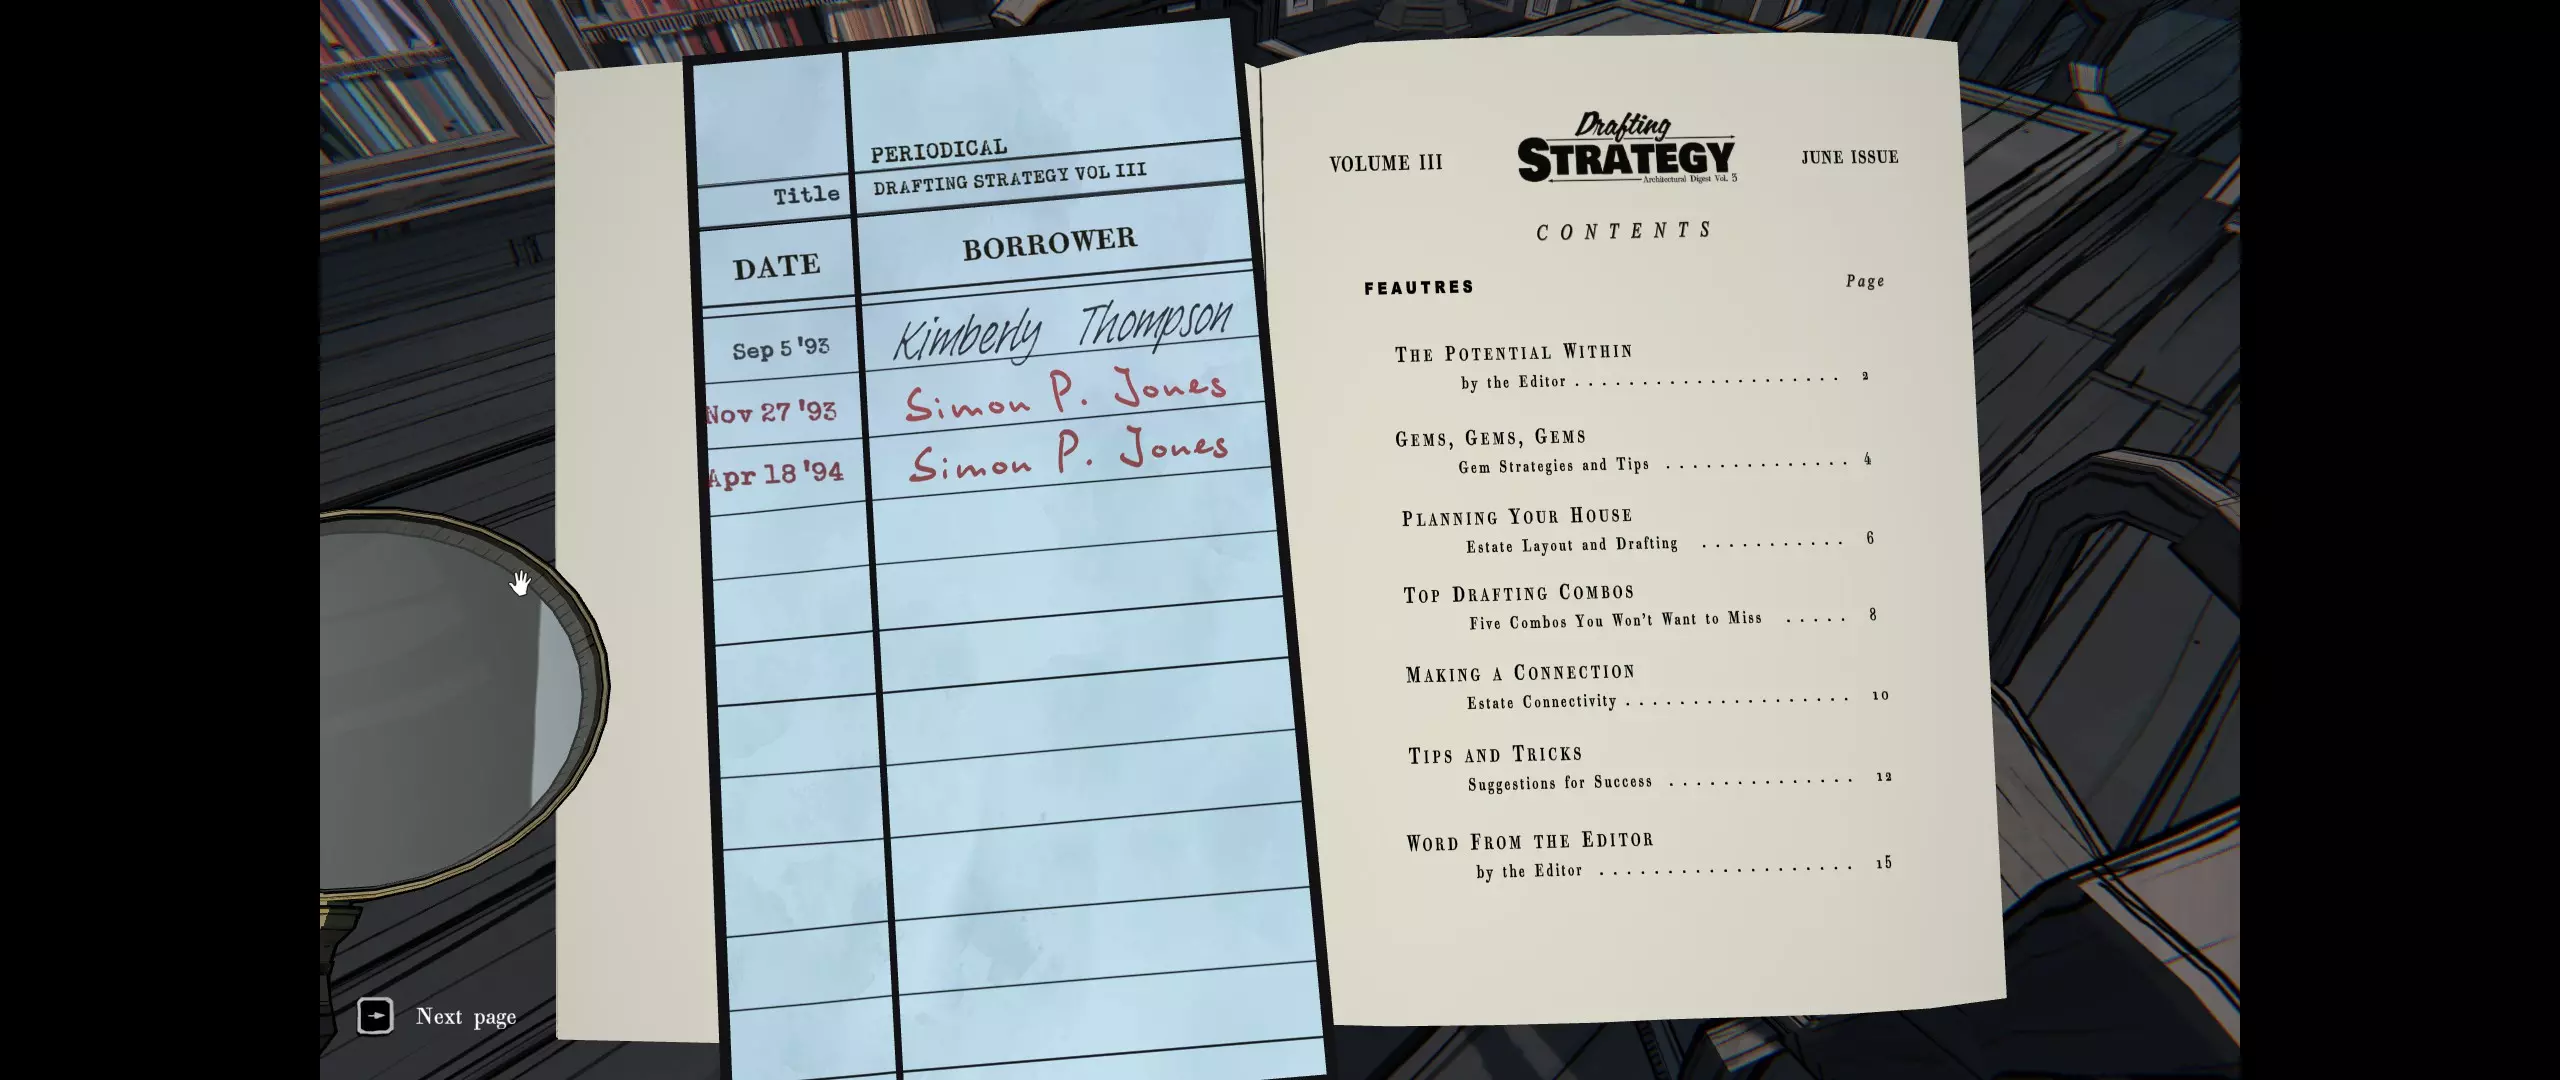 PERIODICAL
Title DRAFTING STRATEGY VOL III
DATE BORROWER
Sep 5 '93 Kimberly Thompson
Nov 27 '93 Simon P. Jones
Apr 18 '94 Simon P. Jones
VOLUME III
Drafting
STRATEGY
Architectural Digest Vol. 3
JUNE ISSUE
CONTENTS
FEAUTRES Page
THE POTENTIAL WITHIN
by the Editor . . . . . . . . . . . . . . . . . . . . 2
GEMS, GEMS, GEMS
Gem Strategies and Tips . . . . . . . . . . . . . . 4
PLANNING YOUR HOUSE
Estate Layout and Drafting . . . . . . . . . . . 6
TOP DRAFTING COMBOS
Five Combos You Won't Want to Miss . . . . . 8
MAKING A CONNECTION
Estate Connectivity . . . . . . . . . . . . . . . . . 10
TIPS AND TRICKS
Suggestions for Success . . . . . . . . . . . . . . 12
WORD FROM THE EDITOR
by the Editor . . . . . . . . . . . . . . . . . . . 15
Next page